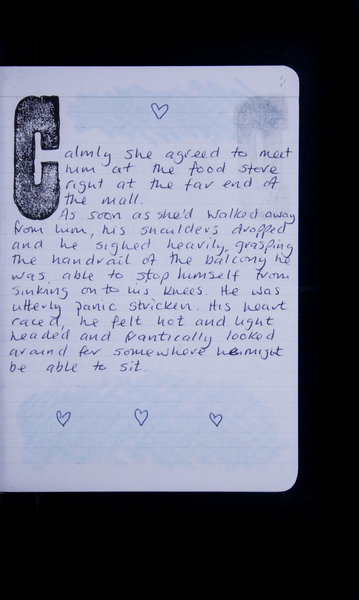 Calmly she agreed to meet
him at the food store
right at the far end of
the mall.
As soon as she'd walked away
from him, his shoulders dropped
and he sighed heavily, grasping
the handrail of the balcony he
was able to stop himself from
sinking on to his knees. He was
utterly panic stricken. His heart
raced, he felt hot and light
headed and frantically looked
around for somewhere he might
be able to sit.